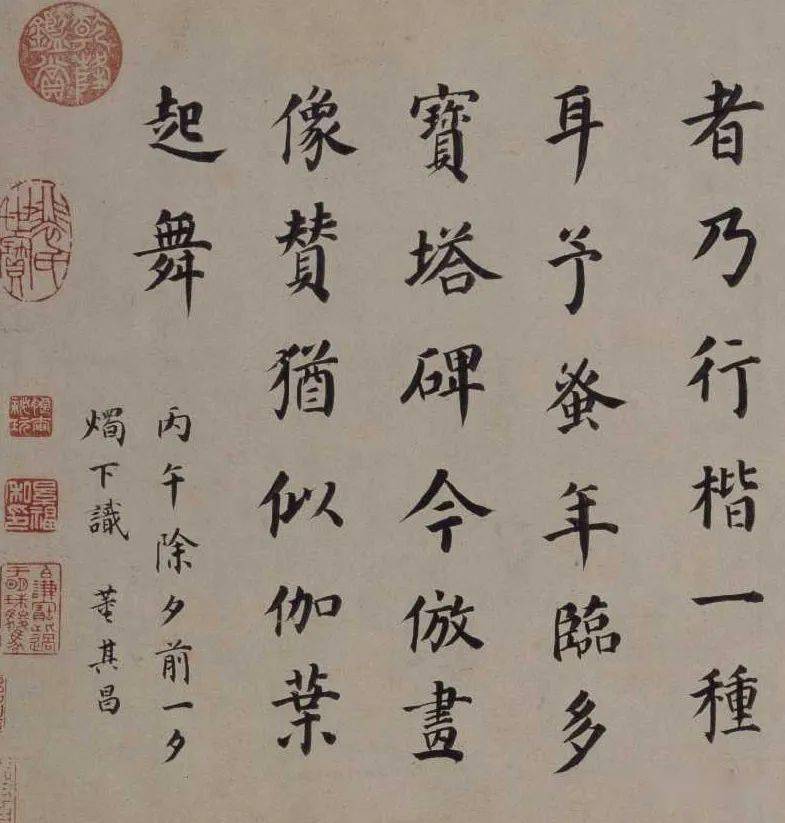 者乃行楷一種
耳予蚤年臨多
寶塔碑今倣畫
像贊猶似伽葉
起舞
丙午除夕前一夕
燭下識 董其昌
乾隆鑑賞